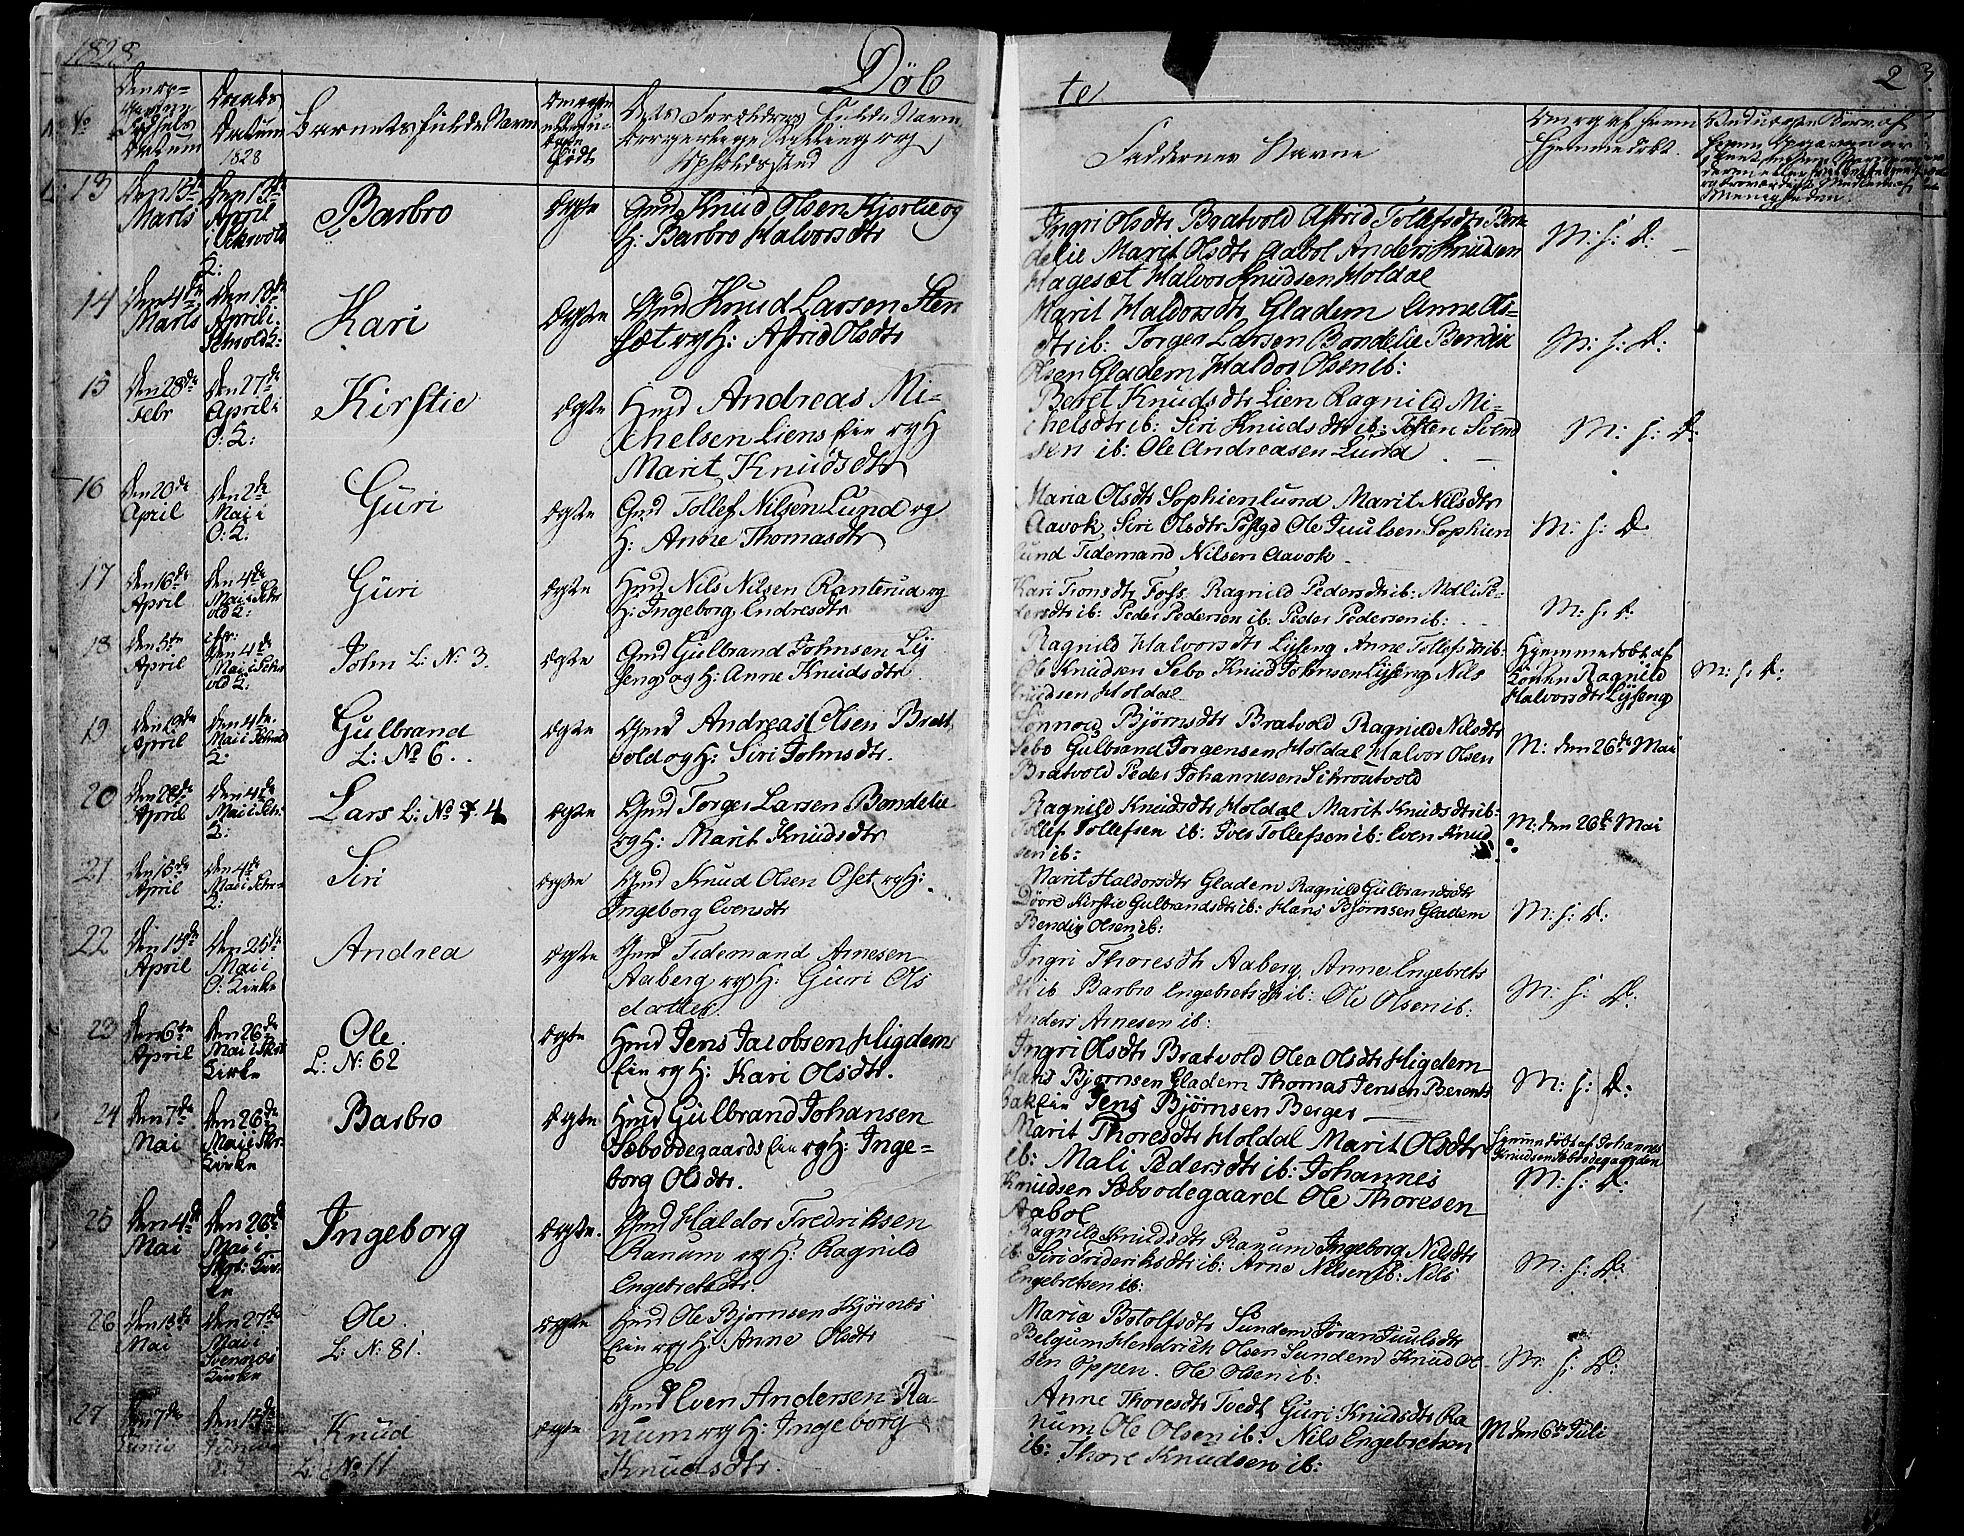 1828
Döbte
2
Barnets fulde Navn
Faddernes Navne
13
Den 13de Marts
Den 13de April
Barbro
ægte
Gmd Knud Olsen Hjorlie og
H: Barbro Halvorsdtr
Ingri Olsdtr Bratvold Astrid Tollefsdtr Bon
delie Marit Olsdtr Aabol Anders Knudsen
Hageset Halvor Knudsen Holdal
M: f: D:
14
Den 4de Marts
Den 13de April i
Kari
ægte
Gmd Knud Larsen Sten
set og H: Astrid Olsdtr
Marit Haldorsdtr Gladem Anne Ols-
dtr ib: Torger Larsen Bondelie Bendix
Olsen Gladem Haldor Olsen ib:
M: f: D:
15
Den 28de Febr
Den 27de April i
O: K:
Kirstie
ægte
Hmd Andreas Mi-
chelsen Liens Eie og H
Marit Knudsdtr
Beret Knudsdtr Lien Ragnild Mi-
chelsdtr ib: Siri Knudsdtr ib: Tosten Svend
sen ib: Ole Andreasen Lund
M: f: D:
16
Den 20de April
Den 2de Mai i
O: K.
Guri
ægte
Gmd Tollef Nilsen Lund og
H: Anne Thomasdtr
Maria Olsdtr Sophienlund Marit Nilsdtr
Aavok, Siri Olsdtr Ole Juulsen Sophien
lund Tedemand Nilsen Aavok
M: f: D.
17
Den 16de April
Den 4de Mai i
Guri
ægte
Hmd Nils Nilsen Ranterud og
H: Ingeborg Endresdtr
Kari Tronsdtr Foss Ragnild Pedersdtr ib: Malli Pe-
dersdtr ib: Peder Pedersen ib: Peder Pedersen ib:
M: f: D:
18
Den 5te April
Den 4de Mai i
John L: No 3.
ægte
Gmd Gulbrand Johnsen Ly
seng og H: Anne Knudsdtr
Ragnild Halvorsdtr Lyseng Anne Tollefsdtr ib:
Ole Knudsen Sebo Knud Johnsen Lyseng Nils
Knudsen Holdal
Hjemmedöbt af
Konen Ragnild
Halvorsdtr Lyseng
M: f: D:
19
April
Den 4de Mai i
Gulbrand
L: No 6.
ægte
Gmd Andreas Olsen Brat
vold og H: Siri Johnsdtr.
Rönnog Björnsdtr Bratvold Ragnild Nilsdtr
Sebo Gulbrand Jorgensen Holdal Halvor Olsen
Bratvold Peder Johannesen Schroutvold
M: den 26de Mai
20
Den 28de April
Den 4de Mai i
Lars L: No 4
ægte
Gmd Torger Larsen Bondelie
og H: Marit Knudsdtr
Ragnild Knudsdtr Holdal Marit Knudsdtr ib:
Tollef Tollefsen ib: Iver Tollefsen ib: Even Knud
sen ib:
M: den 26de Mai
21
Den 15de April
Den 4de Mai i
Siri
ægte
Gmd Knud Olsen Oset og H:
Ingeborg Evensdtr
Marit Haldorsdtr Gladem Ragnild Gulbrandsdtr
Döore Kirstie Gulbrandsdtr ib: Hans Björnsen Gladem
Bendix Olsen ib:
M: f: D:
22
Den 15de April
Den 25de Mai i
O: Kirke
Andrea
ægte
Gmd Tedemand Arnesen
Aaberg og H: Guri Ols
datter
Ingri Thoresdtr Aaberg, Anne Engebrets
dtr ib Barbro Engebretsdtr ib: Ole Olsen ib:
Anders Arnesen ib:
M: f: D:
23
Den 6te April
Den 26de Mai i
Kirke
Ole.
L: No: 62
ægte
Hmd Jens Jacobsen Higdems
Eie og H: Kari Olsdtr.
Ingri Olsdtr Bratvold Olea Olsdtr Higdem
Hans Bjornsen Gladem Thomas Jensen Berents
bak Eie Jens Björnsen Berger
M: f: D:
24
Den 7de Mai
Den 26de Mai i
Kirke
Barbro
ægte
Hmd Gulbrand Johansen
Sæbo ödegaards Eie og H: Inge-
borg Olsdtr.
Marit Thoresdtr Holdal Marit Olsdtr
ib: Mali Pedersdtr ib: Johannes
Knudsen Sæboödegaard Ole Thoresen
Aabol
Hjemmedöbt af Johannes
Knudsen Sebodegaarden
M: f: D:
25
Den 4de Mai
Den 26de Mai i
Ingeborg
ægte.
Gmd Haldor Fredriksen
Ranum og H: Ragnild
Engebretsdtr.
Ragnild Knudsdtr Ranum Ingeborg Nilsdtr
ib: Siri Frideriksdtr ib: Arne Nilsen ib: Nils
Engebretsen ib:
M: f: D:
26
Den 13de Mai
Den 27de Mai i
Svennæs
Kirke
Ole.
L: No: 81.
ægte
Hmd Ole Bjornsen Hjörnes
Eie og H: Anne Olsdtr
Maria Botolfsdtr Sundem Jöran Juulsdtr
Belgum Hendrich Olsen Sundem Knud Ol-
sen Oppen. Ole Olsen ib:
M: f: D:
27
Den 7de Junii
Den 15de Junii
Knud
L: No 11
ægte
Gmd Even Andersen Ra-
num og H: Ingeborg
Knudsdtr.
Anne Thoresdtr Tvedt Guri Knudsdtr Ra
num Ole Olsen ib: Nils Engebretsen
ib: Thore Knudsen ib:
M den 6te Juli